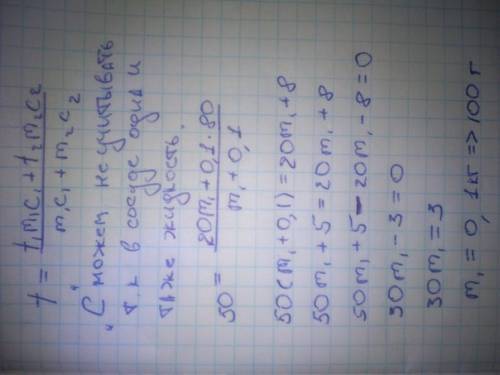 t = t₁m₁c₁ + t₂m₂c₂ / m₁c₁ + m₂c₂
"С" можем не учитывать
т.к в сосуде одна и
таже жидкость.
50 = 20m₁ + 0,1 · 80 / m₁ + 0,1
50(m₁ + 0,1) = 20m₁ + 8
50m₁ + 5 = 20m₁ + 8
50m₁ + 5 - 20m₁ - 8 = 0
30m₁ - 3 = 0
30m₁ = 3
m₁ = 0,1кг => 100г